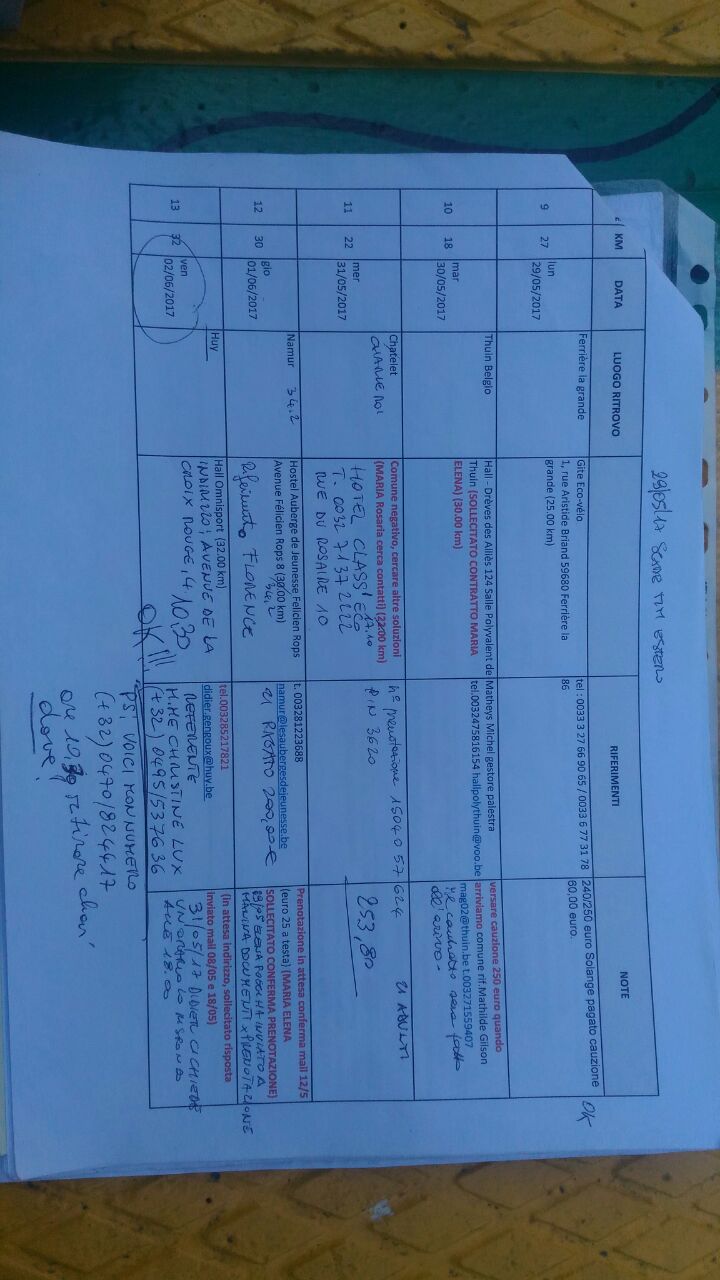 29/05/17
KM DATA LUOGO RITROVO RIFERIMENTI NOTE
9 27 lun
29/05/2017
Ferrière la grande
Gite Eco-vélo
1, rue Aristide Briand 59680 Ferrière la
grande (25.00 km)
tel : 0033 3 27 66 90 65 / 0033 6 77 31 78
86
240/250 euro Solange pagato cauzione
80,00 euro.
OK
10 18 mar
30/05/2017
Thuin Belgio
Hall - Drèves des Alliés 124 Salle Polyvalent de
Thuin (SOLLECITATO CONTRATTO MARIA
ELENA) (30.00 km)
Matheys Michel gestore palestra
tel.0032475816154 hallpolythuin@voo.be
versare cauzione 250 euro quando
arriviamo comune rif.Mathilde Gilson
mag02@thuin.be t.003271559407
11 22 mer
31/05/2017
Chatelet
Comune negativo, cercare altre soluzioni
(MARIA Rosaria cerca contatti) (22:00 km)
17.10
HOTEL CLASS'ECO
T. 0032 71372222
RUE DU ROSAIRE 10
N° prenotazione 15040 57 624
PIN 3620
21 ADULTI
253,80
12 30 gio
01/06/2017
Namur 34.2
Hostel Auberge de Jeunesse Felicien Rops
Avenue Félicien Rops 8 (30.00 km)
34,2
Riferimento FLORENCE
t. 003281223688
namur@lesaubergesdejeunesse.be
Prenotazione in attesa conferma mail 12/5
(euro 25 a testa) (MARIA ELENA
SOLLECITATO CONFERMA PRENOTAZIONE)
HA INVIATO A
MARINA DOCUMENTI x PRENOTAZIONE
13 32 ven
02/06/2017
Huy
Hall Omnisport (32.00 km)
INDIRIZZO: AVENUE DE LA
CROIX ROUGE, 4
10,30
OK!!!
tel.003285217821
didier.gengoux@huy.be
REFERENTE
M.ME CHRISTINE LUX
(+32) 0495/537636
(In attesa indirizzo, sollecitato risposta
inviato mail 08/05 e 18/05)
31/05/17 DIDIER CI CHIEDE
UN ORARIO
ALLE 18.00
PS: VOICI MON NUMERO
(+32) 0470/824417
ore 10,30 ritirare chiavi
dove?